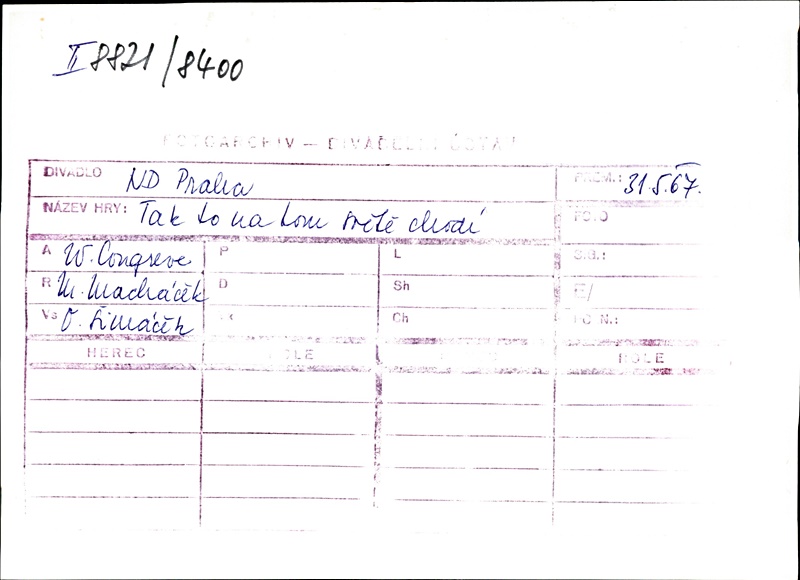 II 8821/8400
FOTOARCHIV – DIVADELNÍ ÚSTAV
DIVADLO ND Praha PREM.: 31.5.67.
NÁZEV HRY: Tak to na tom světě chodí FOTO
A W. Congreve P L S.B.:
R M. Macháček D Sh E/
Vs O. Šimáček Ch PC N.:
HEREC ROLE ROLE